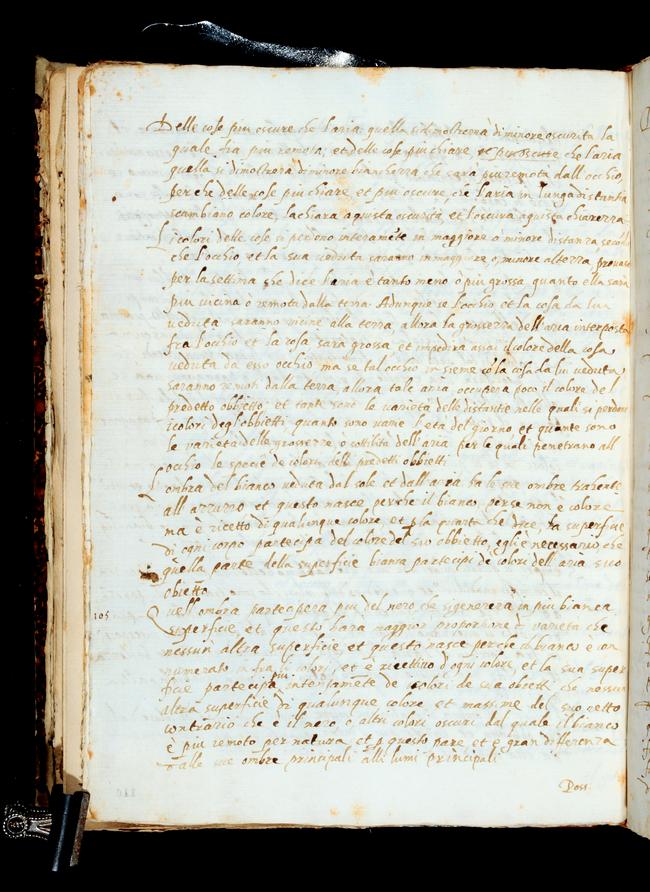 Delle cose piu oscure che l'aria quella si dimostrerra di minore oscurita la
quale fia piu remota, et delle cose piu chiare, che l'aria
quella si dimostrera di minore bianchezza che sara piu remota dall'occhio,
perche delle cose piu chiare et piu oscure, che l'aria in lunga distantia
scambiano colore, la chiara aquista oscurita, et l'oscura aquista chiarezza
I colori delle cose si perdono interamēte in maggiore o minore distanza secōdo
che l'occhio et la cosa veduta saranno in maggiore o minore altezza, provasi
per la settima che dice l'aria è tanto meno o piu grossa quanto ella sara
piu vicina o remota dalla terra. Adunque se l'occhio et la cosa da lui
veduta saranno vicine alla terra, allora la grossezza dell'aria interposta
fra l'occhio et la cosa sara grossa et impedira assai il colore della cosa
veduta da esso occhio ma se tal occhio insieme cō la cosa da lui veduta
saranno remoti dalla terra, allora tale aria occupera poco il colore del
predetto obbietto, et tante sono le varieta delle distantie nelle quali si perdono
i colori degl'obbietti quanto sono varie l'eta del giorno et quante sono
le varieta delle grossezze, o sottilita dell'aria per le quali penetrano all
occhio le specie de colori delli predetti obbietti
L'ombra del bianco veduta dal sole et dall'aria ha le sue ombre trahente
all azzurro et questo nasce perche il bianco per se non è colore
ma è ricetto di qualunque colore, et p la quarta che dice, la superfitie
di ogni corpo partecipa del colore del suo obbietto, egli è necessario, che
quella parte della superficie bianca partecipi de colori dell'aria suo
obietto
105 Quell'ombra participera piu del nero che si generera in piu bianca
superficie, et questo hara maggior proportione de varieta che
nessun altra superficie et questo nasce perche il bianco è con
numerato infra li colori, et è ricettivo d'ogni colore et la sua super
ficie partecipa piu intensamēte de i colori de sua obietti che nessun
altra superficie di qualunque colore et massime del suo retto
contrario che è il nero o altri colori oscuri dal quale il bianco
è piu remoto per natura, et p questo pare et è gran differenza
dalle sue ombre principali alli lumi principali
Poss